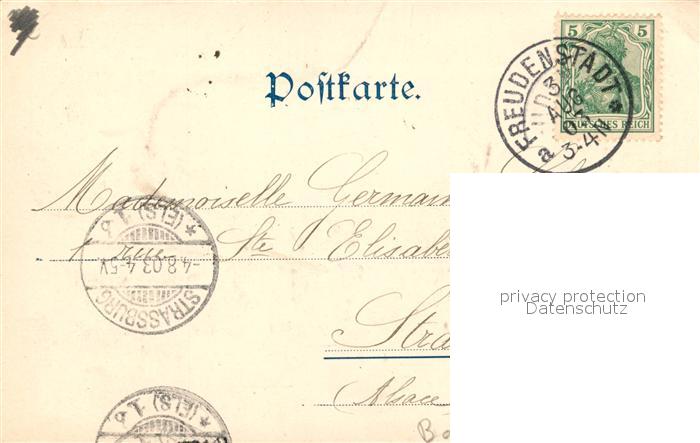 5 5
DEUTSCHES REICH
FREUDENSTADT
AUG
03
3-4N
a
Postkarte.
Mademoiselle German
rue Ste Elisabe
Stra
Alsace
STRASSBURG
* (ELS) 1. b
-4.8.03.4-5V.
* (ELS) 1. b
privacy protection
Datenschutz